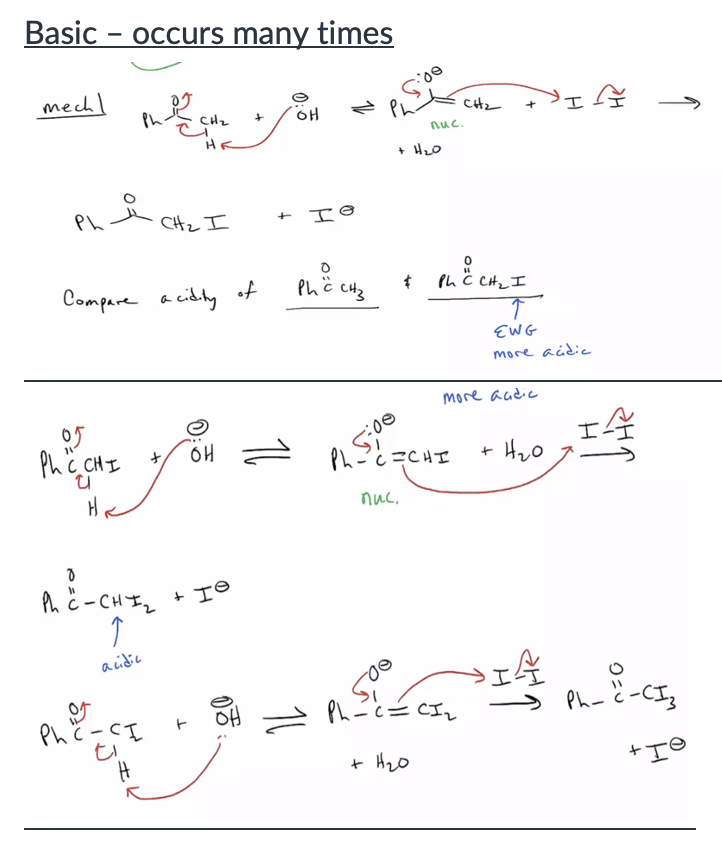 Basic – occurs many times
mech/ Ph O CH2 H + ⊖ :ÖH ⇌ :O⊖ Ph CH2 + I-I →
nuc.
+ H2O
Ph O CH2I + I⊖
Compare acidity of Ph O C CH3 & Ph O C CH2I
EWG
more acidic
more acidic
Ph O C CHI H + ⊖ ÖH ⇌ :O⊖ Ph-C=CHI + H2O I-I →
nuc.
Ph O C-CHI2 + I⊖
acidic
Ph O C-CI I H + ⊖ ÖH ⇌ O⊖ Ph-C=CI2 I-I → Ph-C O -CI3
+ H2O + I⊖